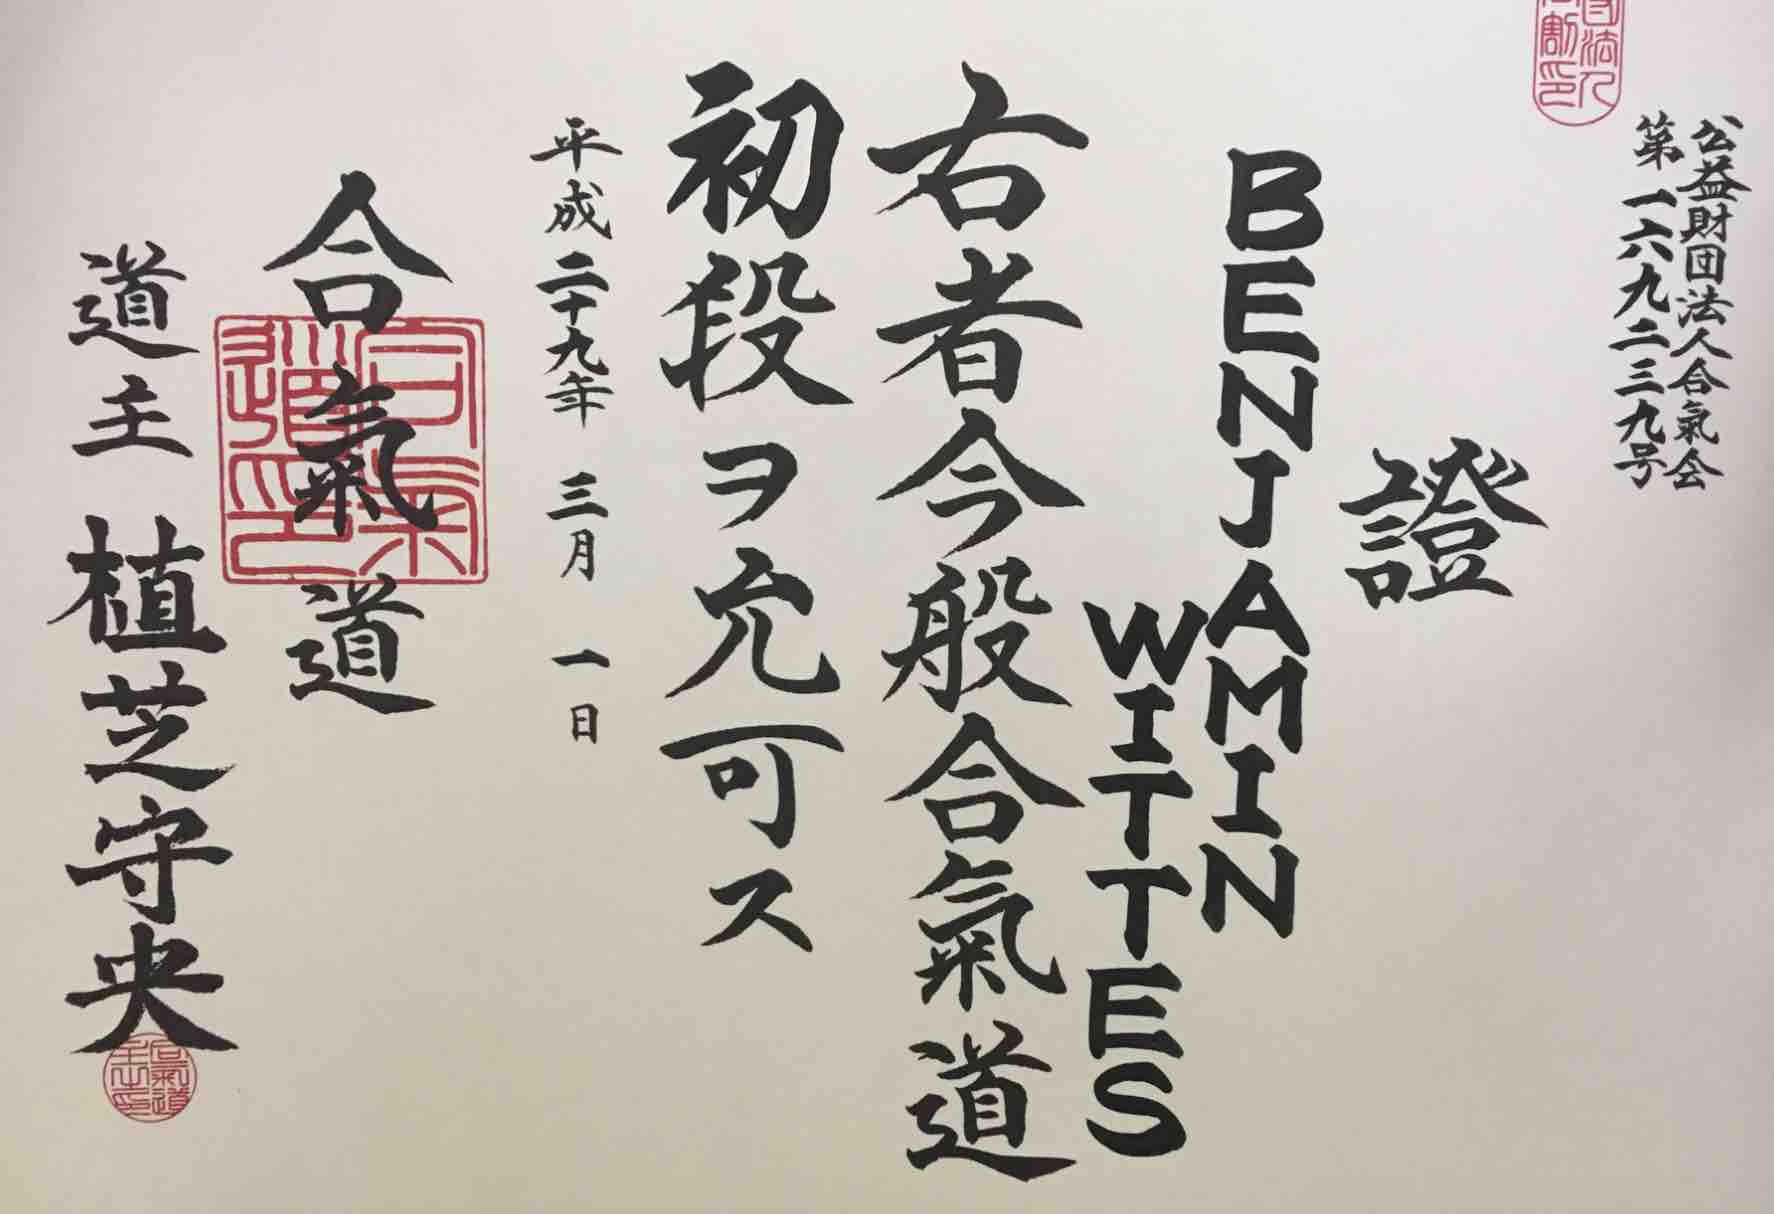 公益財団法人合氣会
第一六九二三九号
證
BENJAMIN
WITTES
右者今般合氣道
初段ヲ允可ス
平成二十九年 三月 一日
合氣道
道主 植芝守央